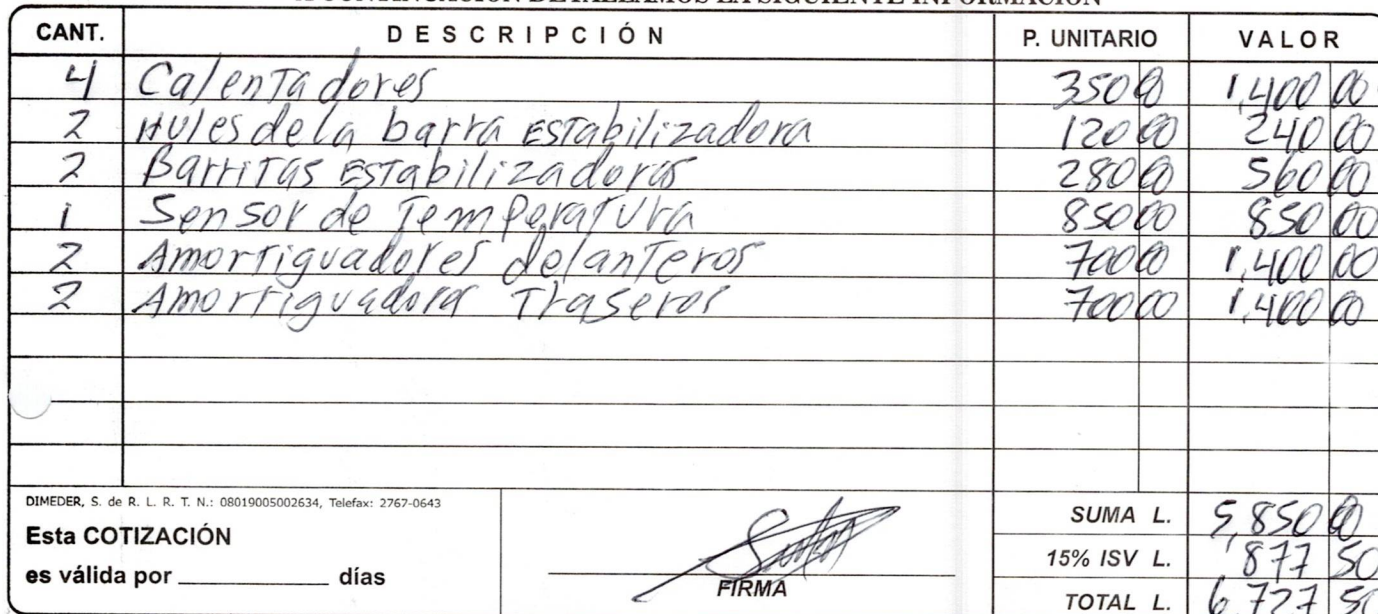 A CONTINUACIÓN DETALLAMOS LA SIGUIENTE INFORMACIÓN
CANT. DESCRIPCIÓN P. UNITARIO VALOR
4 Calentadores 350 00 1,400 00
2 Hules de la barra Estabilizadora 120 00 240 00
2 Barritas Estabilizadoras 280 00 560 00
1 Sensor de Temperatura 850 00 850 00
2 Amortiguadores delanteros 700 00 1,400 00
2 Amortiguadores Traseros 700 00 1,400 00
DIMEDER, S. de R. L. R. T. N.: 08019005002634, Telefax: 2767-0643
Esta COTIZACIÓN
es válida por ____________ días
FIRMA
SUMA L. 5,850 00
15% ISV L. 877 50
TOTAL L. 6,727 50